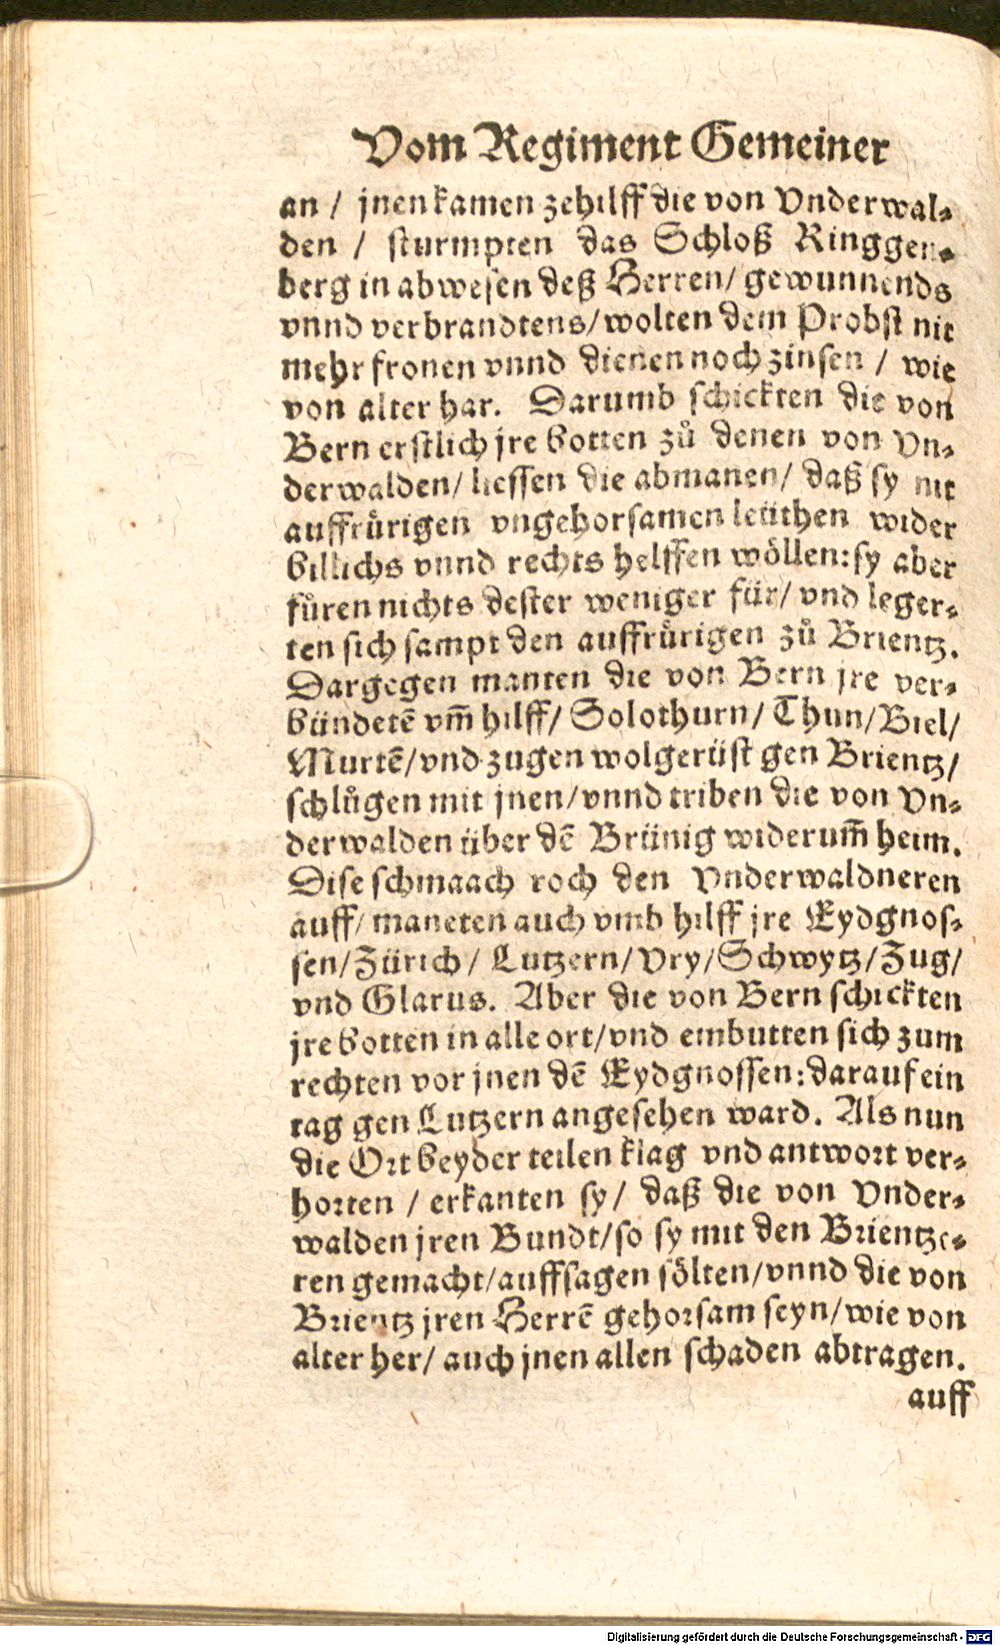 Vom Regiment Gemeiner
an / jnen kamen zehilff die von Vnderwal⸗
den / sturmpten das Schloß Ringgen⸗
berg in abwesen deß Herren/ gewunnends
vnnd verbrandtens/wolten dem Probst nit
mehr fronen vnnd dienen noch zinsen / wie
von alter har. Darumb schickten die von
Bern erstlich jre botten zů denen von Vn⸗
derwalden/ liessen die abmanen/ daß sy nit
auffrůrigen vngehorsamen leüthen wider
billichs vnnd rechts helffen wöllen:sy aber
fůren nichts dester weniger für/ vnd leger⸗
ten sich sampt den auffrůrigen zů Brientz.
Dargegen manten die von Bern jre ver⸗
bündetē vm̃ hilff/ Solothurn/ Thun/Biel/
Murtē/vnd zugen wolgerüst gen Brientz/
schlůgen mit jnen/vnnd triben die von Vn⸗
derwalden über dē Brünig widerum̃ heim.
Dise schmaach roch den Vnderwaldneren
auff/ maneten auch vmb hilff jre Eydgnos⸗
sen/Zürich/ Lutzern/ Vry/Schwytz/Zug/
vnd Glarus. Aber die von Bern schickten
jre botten in alle ort/vnd embutten sich zum
rechten vor jnen dē Eydgnossen:darauf ein
tag gen Lutzern angesehen ward. Als nun
die Ort beyder teilen klag vnd antwort ver⸗
horten / erkanten sy/ daß die von Vnder⸗
walden jren Bundt/so sy mit den Brientze⸗
ren gemacht/auffsagen sölten/vnnd die von
Brientz jren Herrē gehorsam seyn/wie von
alter her/ auch jnen allen schaden abtragen.
auff
Digitalisierung gefördert durch die Deutsche Forschungsgemeinschaft - DFG